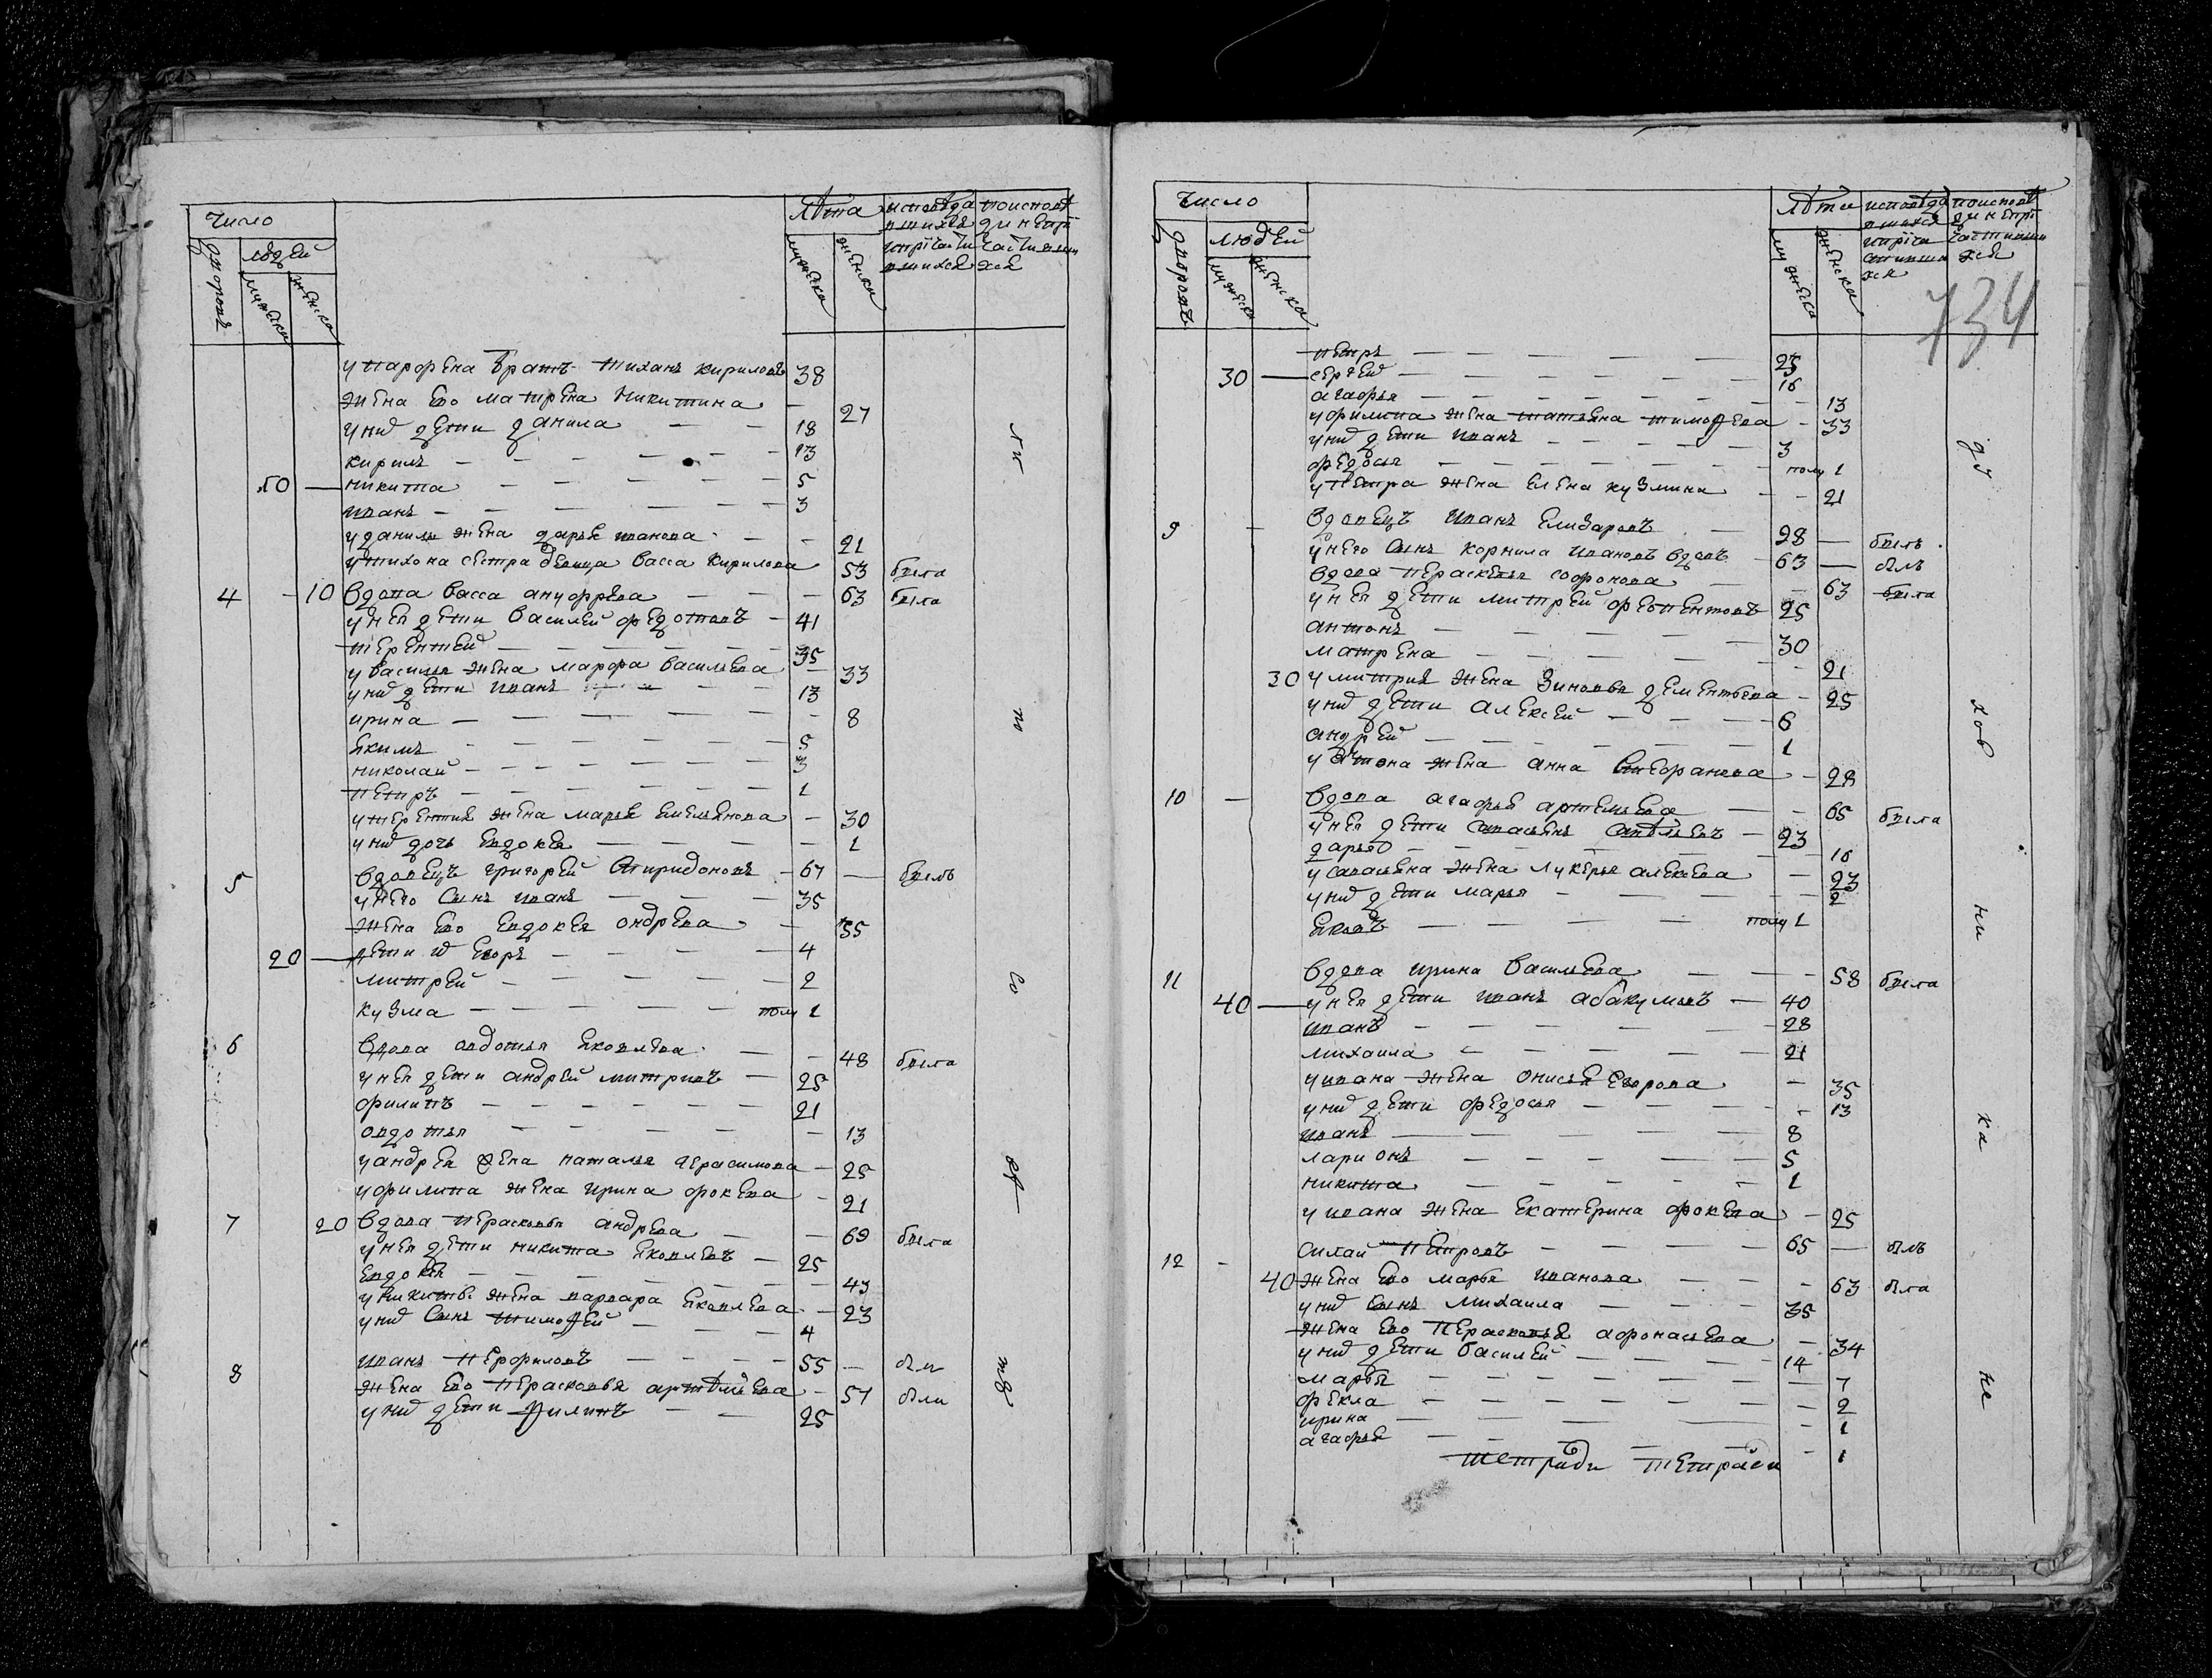 Число
лѣта исповѣда поисповѣ
вшихся ди непрї
дворовъ людей мужеска женска ипрїчасти частивши
мужеска женска вшихся хся
у парфена братъ тиханъ кириловъ 38
жена ево матрена никитина 27
у них дети данила 18
кирилъ 13
10 никита 5
иванъ 3
у данилы жена дарья иванова 21
у тихона сестра девица васса кирилова 53 была
4 10 вдова васса ануфрева 63 была
у нея дети василей федотовъ 41
терентей 35
у василья жена марфа васильева 33
у них дети иванъ 13
ирина 8
якимъ 5
николай 3
петръ 1
у терентия жена марья емельянова 30
у них дочь евдокея 1
5 вдовецъ григорей спиридоновъ 67 былъ
у него сынъ иванъ 35
жена ево евдокея андрева 35
20 дети их егоръ 4
митрей 2
кузма полу 1
6 вдова авдотья яковлева 48 была
у нея дети андрей митривъ 25
филипъ 21
овдотья 13
у андрея жена наталья герасимова 25
у филипа жена ирина фокева 21
7 20 вдова перасковья андрева 69 была
у нея дети никита яковлевъ 25
евдокея 43
у никиты жена варвара яковлева 23
у них сынъ тимофей 4
8 иванъ перфиловъ 55 был
жена ево перасковья артемьева 57 были
у них дети филипъ 25
ли
то
со
ев
тв
Число
лѣта исповѣда поисповѣ
вшихся ди непрї
дворовъ людей мужеска женска ипрїча частивши
мужеска женска стивши хся
хся
734
петръ 25
30 сергей 16
агафья 13
у филипа жена татьяна тимофева 33
у них дети иванъ 3
федосья полу 1
у петра жена елена кузмина 21
9 вдовецъ иванъ елизаровъ 28 былъ
у него сынъ корнила ивановъ вдовъ 63 былъ
вдова пераскевья софронова 63 была
у нея дети митрей феопентовъ 25
антонъ 30
матрена 21
30 у митрия жена зиновья дементьева 25
у них дети алексей 6
андрей 1
у антона жена анна 28
10 вдова агафья артемьева 65 была
у нея дети савастьянъ савельевъ 23
дарья 16
у савастьяна жена лукерья алексева 23
у них дети марья 2
яковъ полу 1
11 вдова ирина васильева 58 была
40 у нея дети иванъ абакумовъ 40
иванъ 28
михаила 21
у ивана жена онисья егорова 35
у них дети федосья 13
иванъ 8
ларионъ 5
никита 1
у ивана жена екатерина фокева 25
12 силай петровъ 65 былъ
40 жена ево марья иванова 63 была
у них сынъ михаила 35
жена ево перасковья афонасьева 34
у них дети василей 14
марья 7
фекла 2
ирина 1
агафья 1
тетради тетради
ду
хов
ни
ка
не